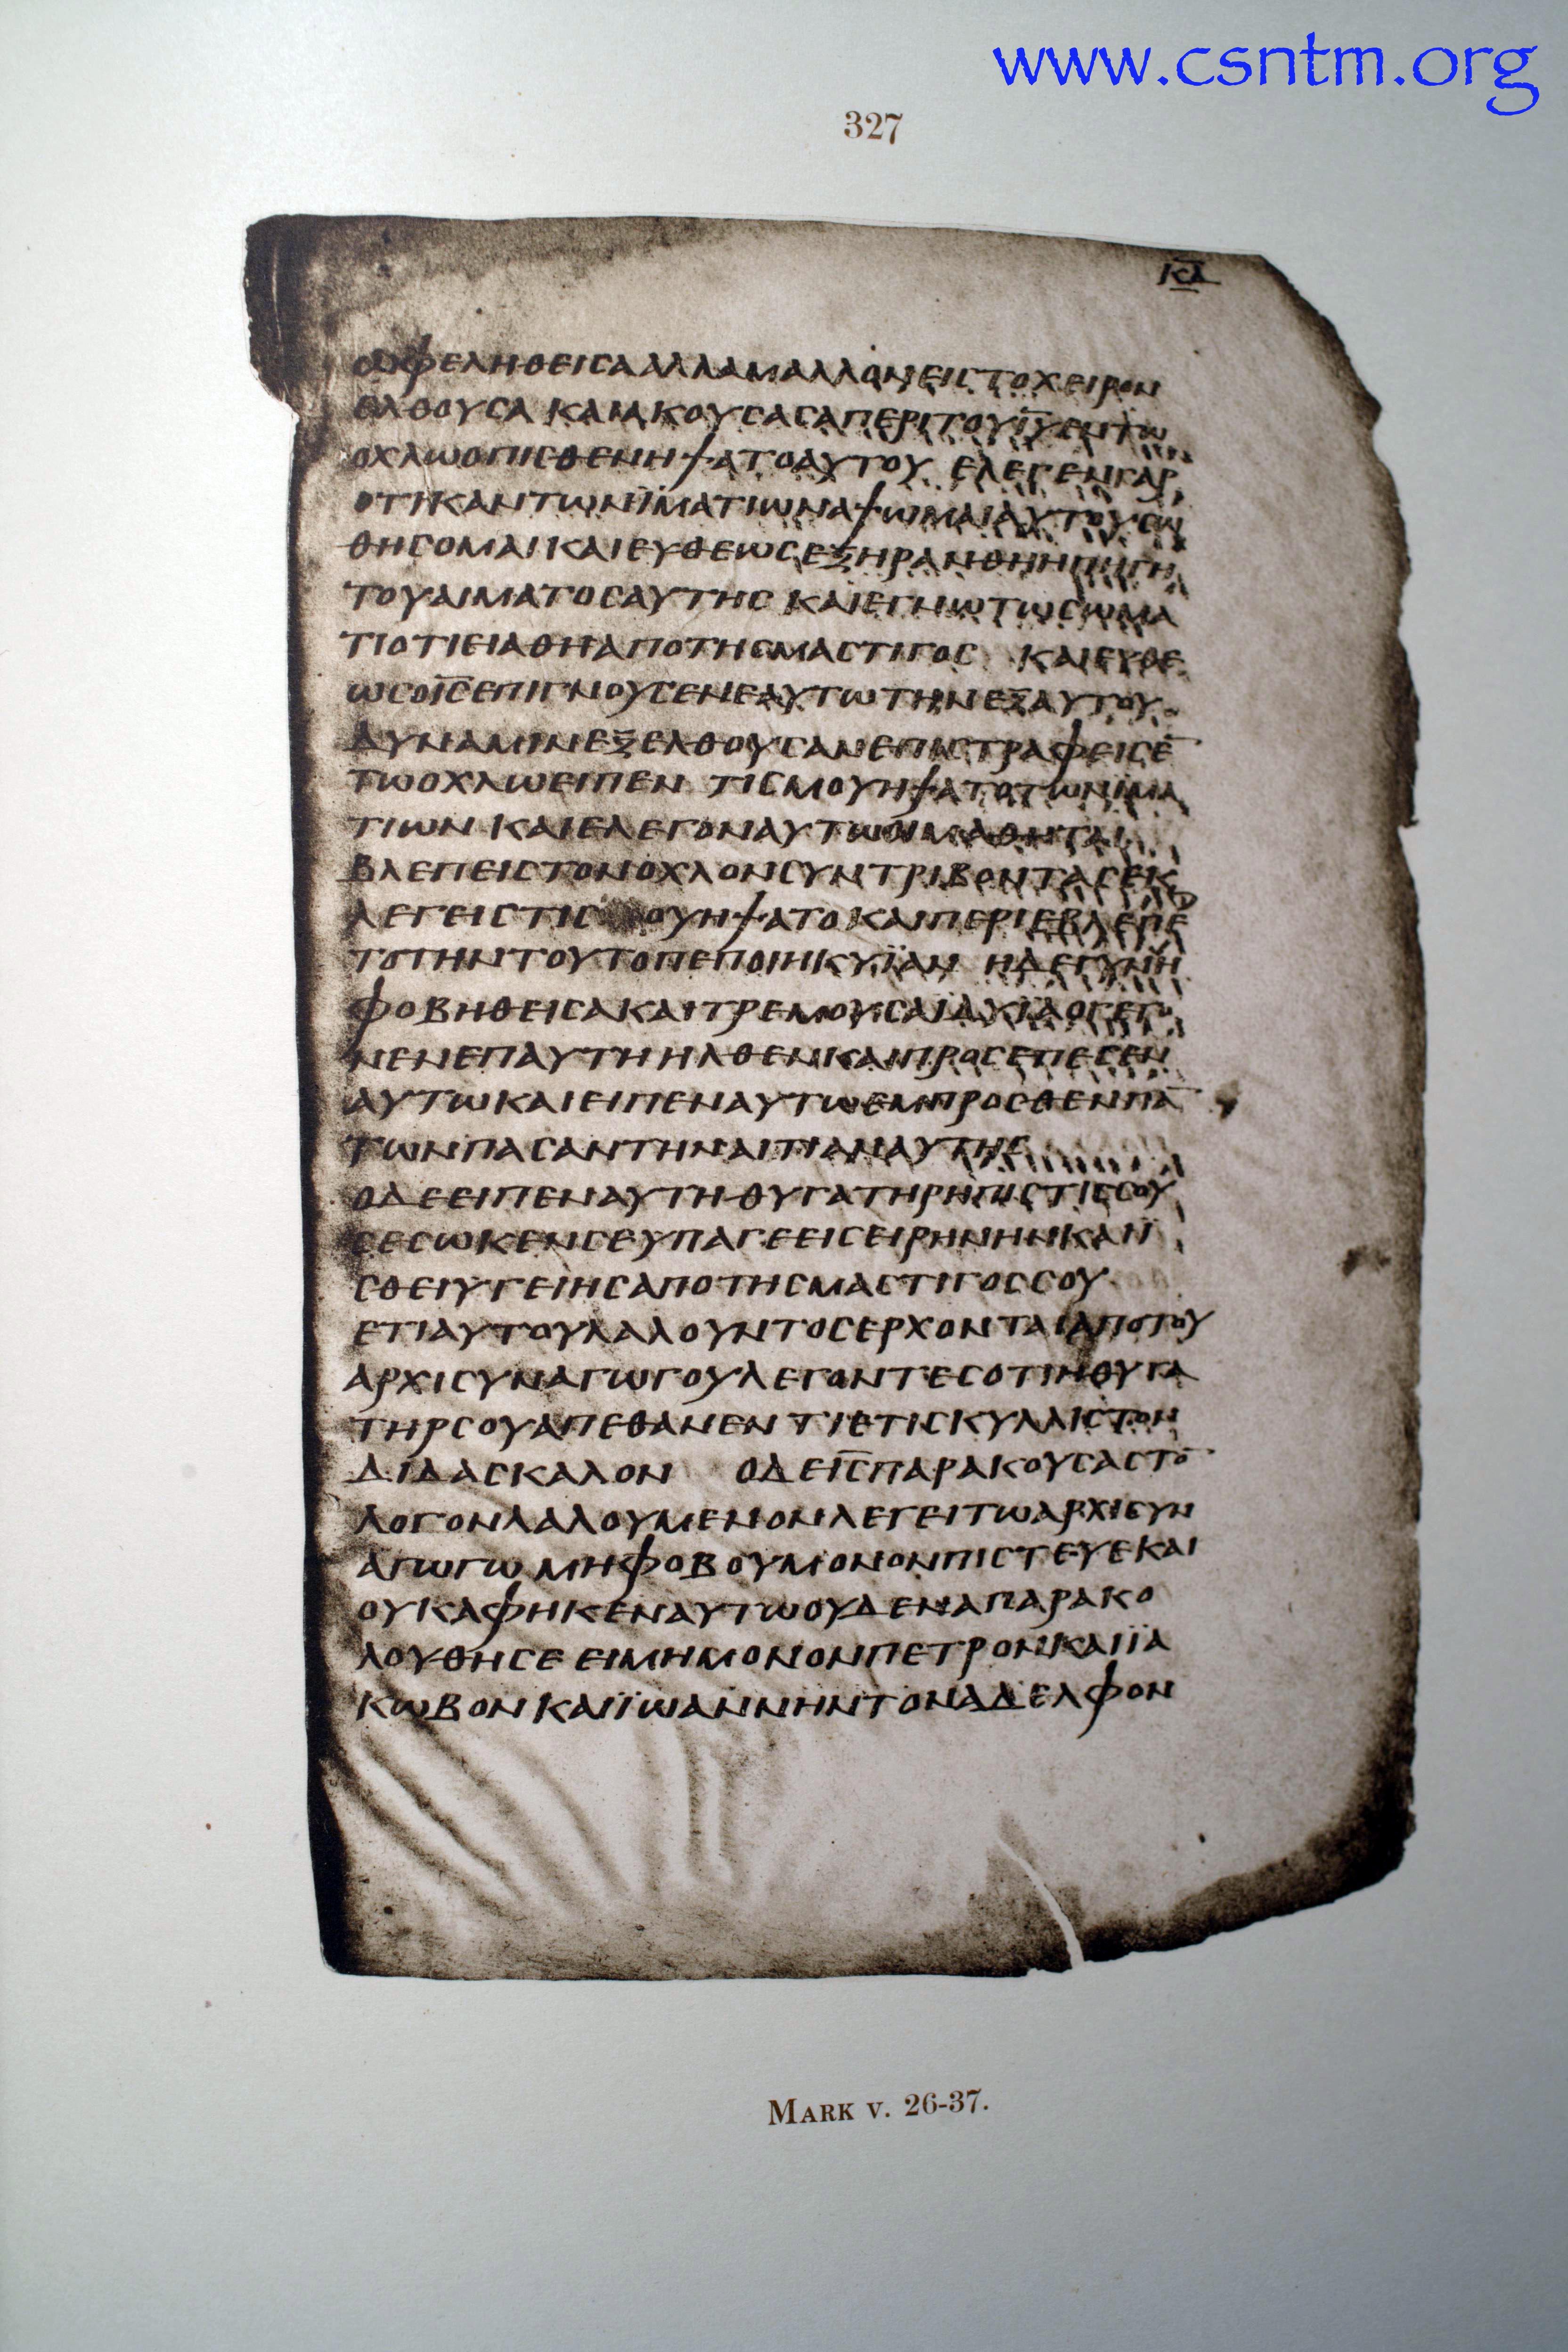 www.csntm.org
327
ΚΑ
ΩΦΕΛΗΘΕΙСΑΑΛΛΑΜΑΛΛΟΝΕΙСΤΟΧΕΙΡΟΝ
ΕΛΘΟΥСΑ ΚΑΙΑΚΟΥСΑСΑΠΕΡΙΤΟΥΙ̅Υ̅ΕΝΤΩ
ΟΧΛΩΟΠΙСΘΕΝΗΨΑΤΟΑΥΤΟΥ ΕΛΕΓΕΝΓΑΡ
ΟΤΙΚΑΝΤΩΝΪΜΑΤΙΩΝΑΨΩΜΑΙΑΥΤΟΥСΩ
ΘΗСΟΜΑΙΚΑΙΕΥΘΕΩСΕΞΗΡΑΝΘΗΗΠΗΓΗ
ΤΟΥΑΙΜΑΤΟСΑΥΤΗС ΚΑΙΕΓΝΩΤΩСΩΜΑ
ΤΙΟΤΙΕΙΑΘΗΑΠΟΤΗСΜΑСΤΙΓΟС ΚΑΙΕΥΘΕ
ΩСΟΙ̅С̅ΕΠΙΓΝΟΥСΕΝΕΑΥΤΩΤΗΝΕΞΑΥΤΟΥ
ΔΥΝΑΜΙΝΕΞΕΛΘΟΥСΑΝΕΠΙСΤΡΑΦΕΙСΕ̅
ΤΩΟΧΛΩΕΙΠΕΝ ΤΙСΜΟΥΗΨΑΤΟΤΩΝΪΜΑ
ΤΙΩΝ ΚΑΙΕΛΕΓΟΝΑΥΤΩΟΙΜΑΘΗΤΑΙ
ΒΛΕΠΕΙСΤΟΝΟΧΛΟΝСΥΝΤΡΙΒΟΝΤΑСΕΚ
ΛΕΓΕΙСΤΙС ΜΟΥΗΨΑΤΟΚΑΙΠΕΡΙΕΒΛΕΠΕ
ΤΟΤΗΝΤΟΥΤΟΠΕΠΟΙΗΚΥΪΑΝ ΗΔΕΓΥΝΗ
ΦΟΒΗΘΕΙСΑΚΑΙΤΡΕΜΟΥСΑΙΔΥΙΑΟΓΕΓΟ
ΝΕΝΕΠΑΥΤΗΗΛΘΕΝΚΑΙΠΡΟСΕΠΕСΕΝ
ΑΥΤΩΚΑΙΕΙΠΕΝΑΥΤΩΕΜΠΡΟСΘΕΝΠΑ̅
ΤΩΝΠΑСΑΝΤΗΝΑΙΤΙΑΝΑΥΤΗС
ΟΔΕΕΙΠΕΝΑΥΤΗΘΥΓΑΤΗΡΗΠΙСΤΙССΟΥ
СΕСΩΚΕΝСΕΥΠΑΓΕΕΙСΕΙΡΗΝΗΝΚΑΙ
СΘΕΙΥΓΕΙΗСΑΠΟΤΗСΜΑСΤΙΓΟССΟΥ
ΕΤΙΑΥΤΟΥΛΑΛΟΥΝΤΟСΕΡΧΟΝΤΑΙΑΠΟΤΟΥ
ΑΡΧΙСΥΝΑΓΩΓΟΥΛΕΓΟΝΤΕСΟΤΙΗΘΥΓΑ
ΤΗΡСΟΥΑΠΕΘΑΝΕΝ ΤΙΕΤΙСΚΥΛΛΙСΤΟΝ
ΔΙΔΑСΚΑΛΟΝ ΟΔΕΙ̅С̅ΠΑΡΑΚΟΥСΑСΤΟ̅
ΛΟΓΟΝΛΑΛΟΥΜΕΝΟΝΛΕΓΕΙΤΩΑΡΧΙСΥΝ
ΑΓΩΓΩ ΜΗΦΟΒΟΥΜΟΝΟΝΠΙСΤΕΥΕΚΑΙ
ΟΥΚΑΦΗΚΕΝΑΥΤΩΟΥΔΕΝΑΠΑΡΑΚΟ
ΛΟΥΘΗСΕ ΕΙΜΗΜΟΝΟΝΠΕΤΡΟΝΚΑΙΪΑ
ΚΩΒΟΝΚΑΙΪΩΑΝΝΗΝΤΟΝΑΔΕΛΦΟΝ
MARK V. 26-37.